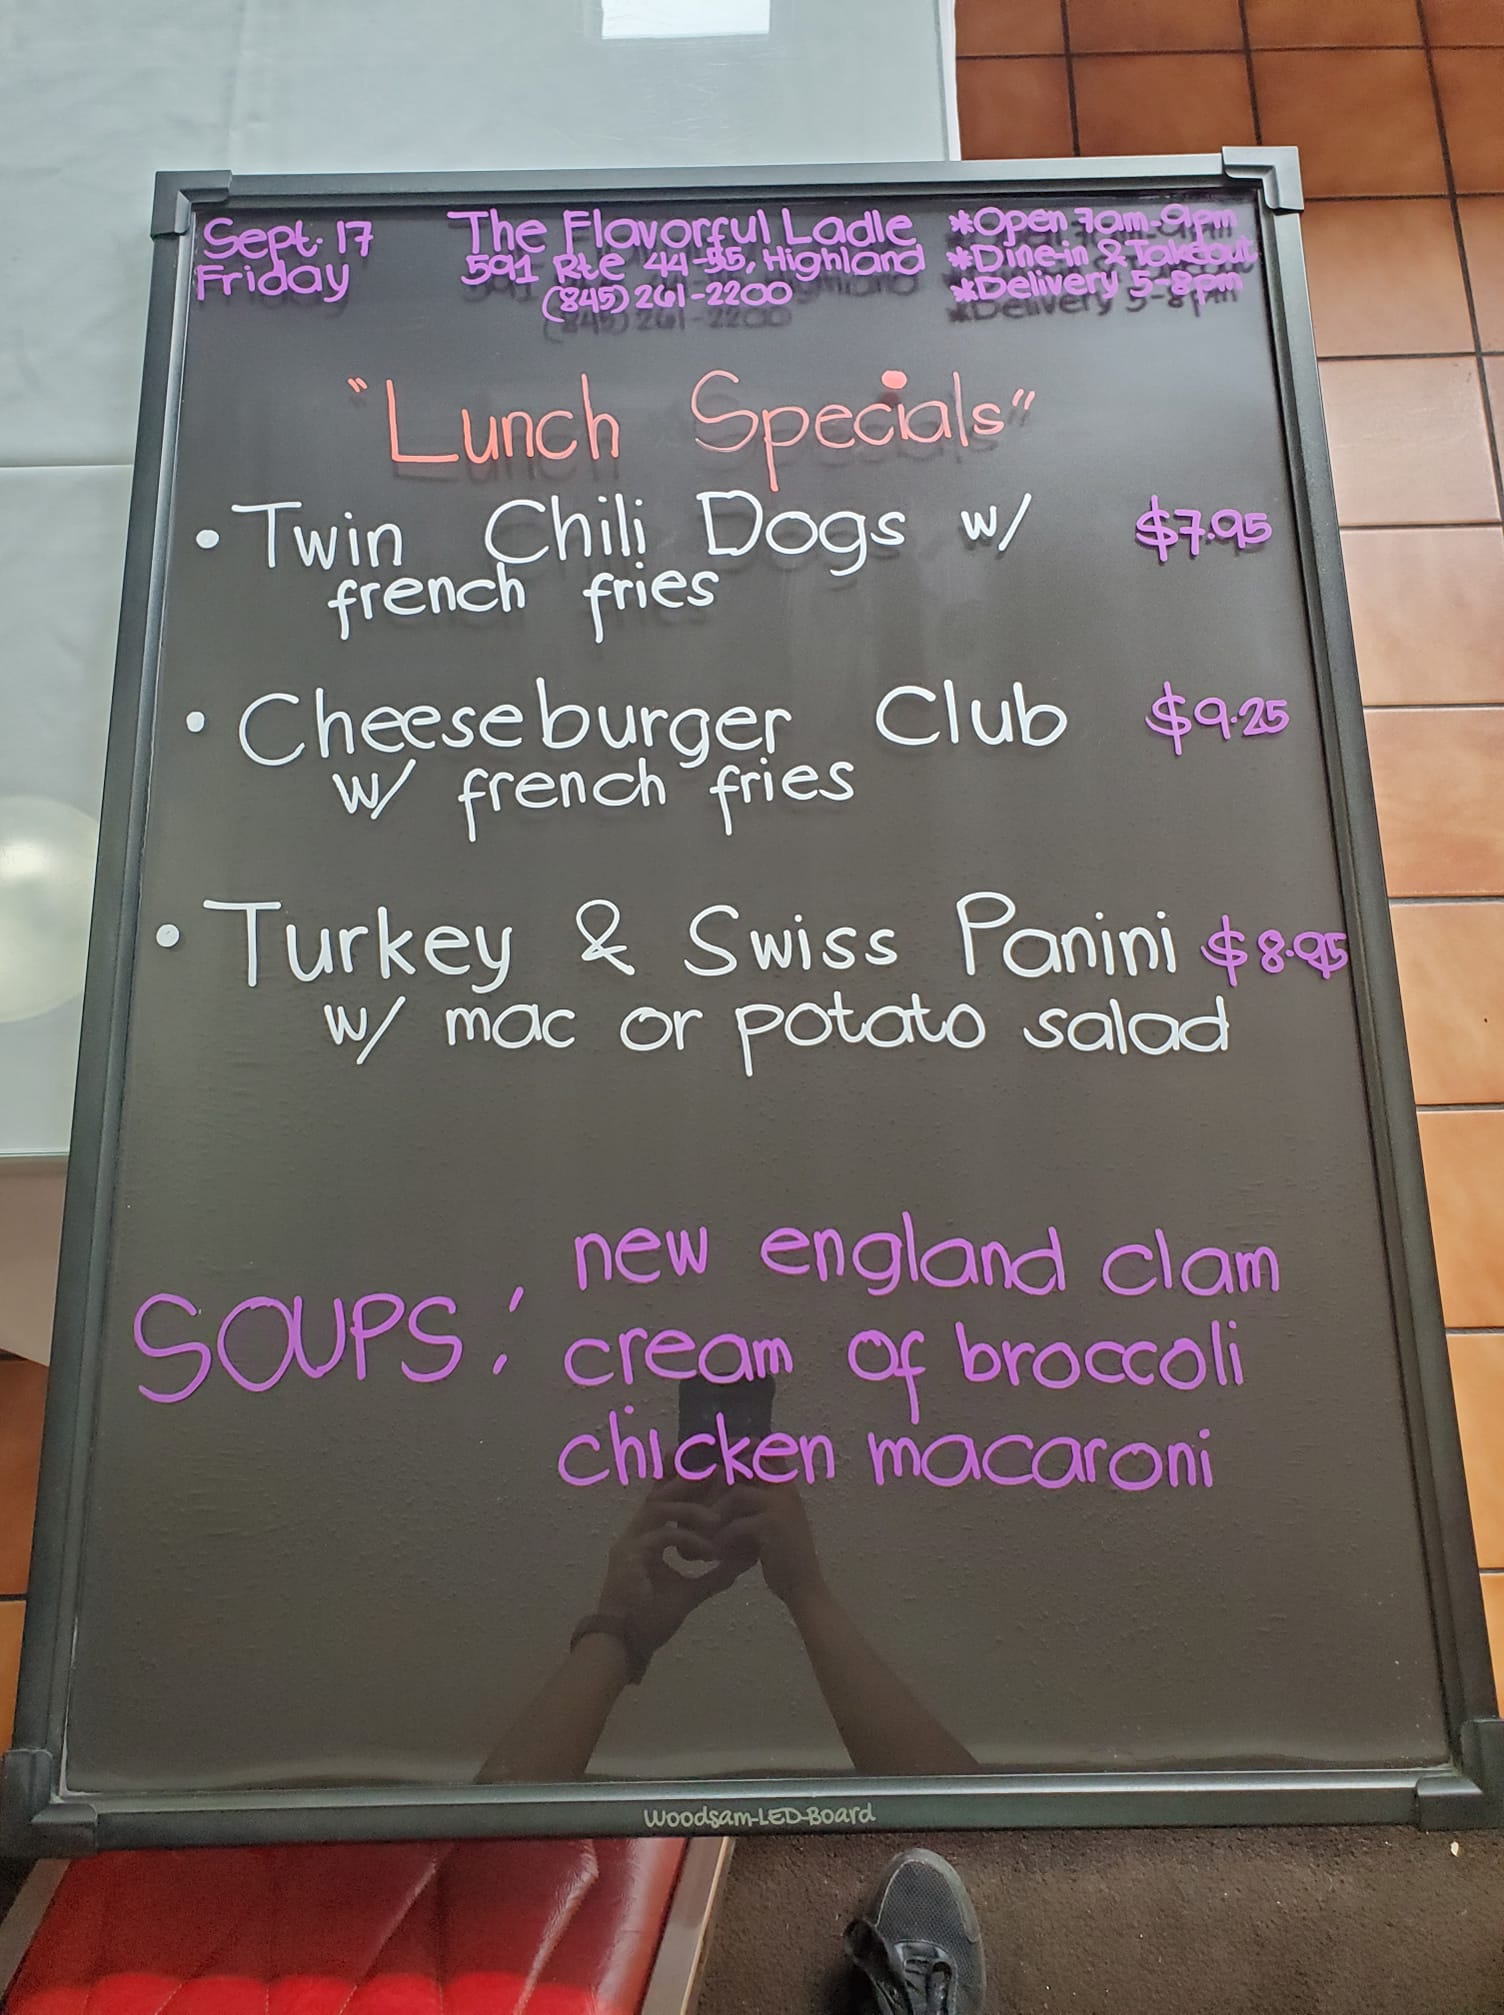 Sept. 17
Friday
The Flavorful Ladle
591 Rte 44-55, Highland
(845) 261-2200
*Open 7am-9pm
*Dine-in & Takeout
*Delivery 5-8pm
"Lunch Specials"
• Twin Chili Dogs w/ $7.95
french fries
• Cheeseburger Club $9.25
w/ french fries
• Turkey & Swiss Panini $8.95
w/ mac or potato salad
SOUPS:
new england clam
cream of broccoli
chicken macaroni
Woodsam-LED-Board